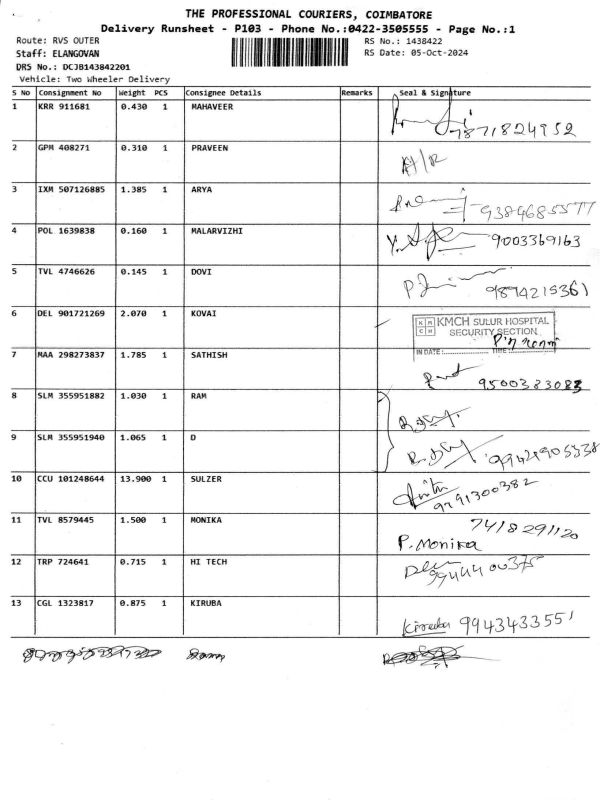 THE PROFESSIONAL COURIERS, COIMBATORE
Delivery Runsheet - P103 - Phone No.:0422-3505555 - Page No.:1
Route: RVS OUTER RS No.: 1438422
Staff: ELANGOVAN RS Date: 05-Oct-2024
DRS No.: DCJB143842201
Vehicle: Two Wheeler Delivery
S No Consignment No Weight PCS Consignee Details Remarks Seal & Signature
1 KRR 911681 0.430 1 MAHAVEER
7871824952
2 GPM 408271 0.310 1 PRAVEEN
3 IXM 507126885 1.385 1 ARYA
9384685577
4 POL 1639838 0.160 1 MALARVIZHI
9003369163
5 TVL 4746626 0.145 1 DOVI
9894215361
6 DEL 901721269 2.070 1 KOVAI
KMCH SULUR HOSPITAL
SECURITY SECTION
IN DATE: TIME:
7 MAA 298273837 1.785 1 SATHISH
9500383083
8 SLM 355951882 1.030 1 RAM
9 SLM 355951940 1.065 1 D
9942905338
10 CCU 101248644 13.900 1 SULZER
9791300382
11 TVL 8579445 1.500 1 MONIKA
7418291120
P. Monika
12 TRP 724641 0.715 1 HI TECH
9944400375
13 CGL 1323817 0.875 1 KIRUBA
Kiruba 9943433551